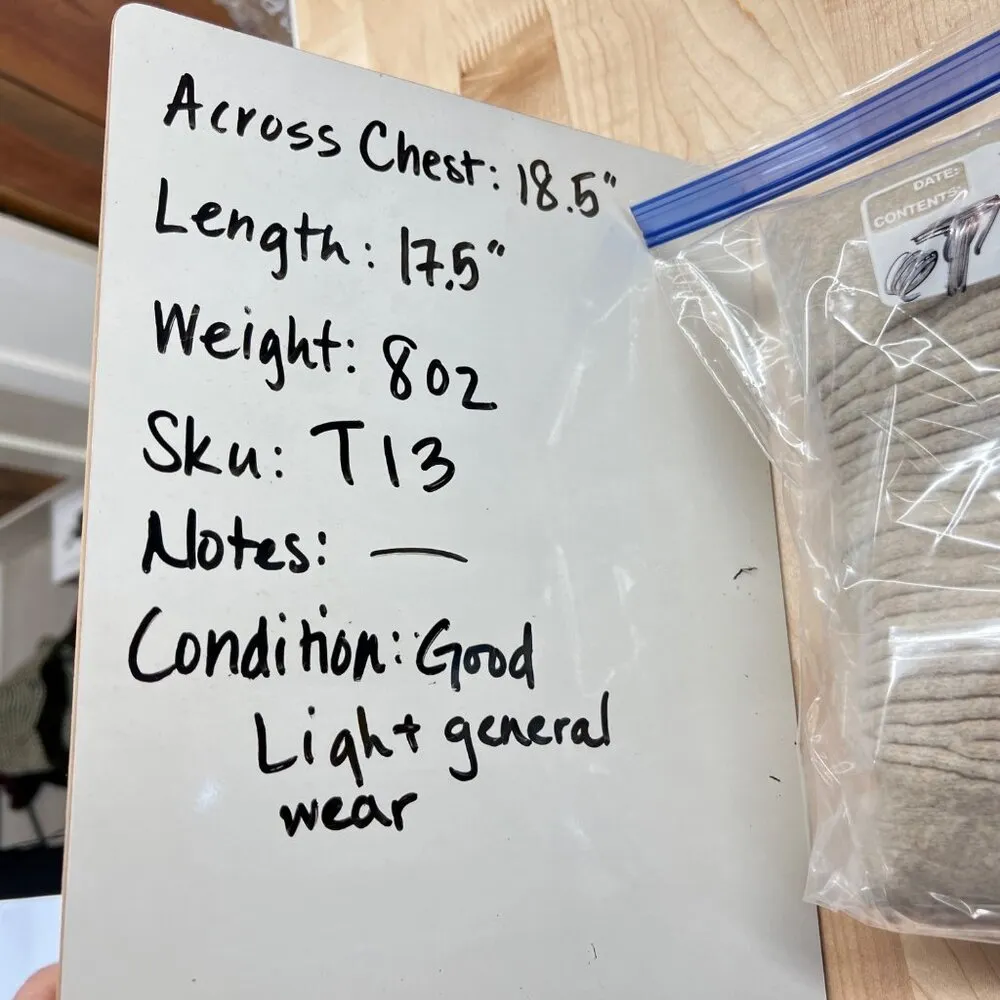 Across Chest: 18.5"
Length: 17.5"
Weight: 8oz
Sku: T13
Notes: —
Condition: Good
Light general
wear
DATE:
CONTENTS: